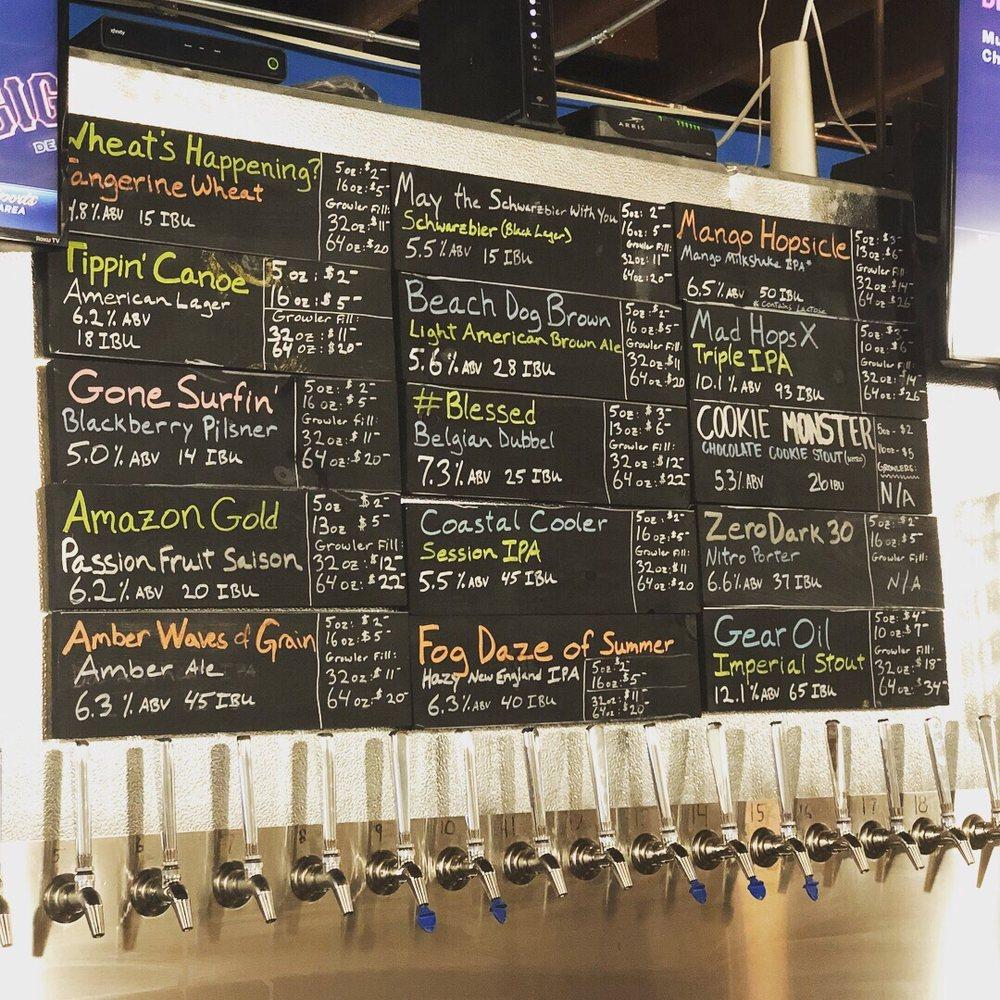 Wheat's Happening?
Tangerine Wheat
4.8% ABV 15 IBU
5oz: $2-
16oz: $5-
Growler Fill:
32oz: $11-
64oz: $20
Tippin' Canoe
American Lager
6.2% ABV
18 IBU
5oz: $2-
16oz: $5-
Growler Fill:
32oz: $11-
64oz: $20-
Gone Surfin'
Blackberry Pilsner
5.0% ABV 14 IBU
5oz: $2-
16oz: $5-
Growler fill:
32oz: $11-
64oz: $20-
Amazon Gold
Passion Fruit Saison
6.2% ABV 20 IBU
5oz $2-
13oz $5-
Growler Fill:
32oz: $12-
64oz: $22-
Amber Waves of Grain
Amber Ale
6.3% ABV 45 IBU
5oz: $2-
16oz: $5-
Growler Fill:
32oz: $11-
64oz: $20-
May the Schwarzbier With You
Schwarzbier (Black Lager)
5.5% ABV 15 IBU
5oz: 2-
16oz: 5-
Growler Fill:
32oz: 11-
64oz: 20-
Beach Dog Brown
Light American Brown Ale
5.6% ABV 28 IBU
5oz: $2-
16oz $5-
Growler Fill:
32oz $11
64oz $20
#Blessed
Belgian Dubbel
7.3% ABV 25 IBU
5oz: $3-
13oz: $6-
Growler Fill:
32oz: $12-
64oz: $22-
Coastal Cooler
Session IPA
5.5% ABV 45 IBU
5oz: $2-
16oz: $5-
Growler Fill:
32oz: $11
64oz: $20
Fog Daze of Summer
Hazy New England IPA
6.3% ABV 40 IBU
5oz: $2-
16oz: $5-
32oz: $11-
64oz: $20-
Mango Hopsicle
Mango Milkshake IPA*
6.5% ABV 50 IBU
* Contains Lactose
5oz: $3-
13oz: $6-
Growler Fill:
32oz: $14-
64oz: $26-
Mad Hops X
Triple IPA
10.1% ABV 93 IBU
5oz: $3-
10oz: $6-
Growler Fill:
32oz: $14-
64oz: $26
COOKIE MONSTER
CHOCOLATE COOKIE STOUT (NITRO)
5.3% ABV 26 IBU
5oz - $2
16oz - $5
GROWLERS:
N/A
ZeroDark 30
Nitro Porter
6.6% ABV 37 IBU
5oz: $2-
16oz: $5-
Growler Fill:
N/A
Gear Oil
Imperial Stout
12.1% ABV 65 IBU
5oz: $4-
10oz: $7-
Growler Fill:
32oz: $18-
64oz: $34-
xfinity
ARRIS
Roku TV
AREA
5
6
7
8
9
10
11
12
13
14
15
16
17
18